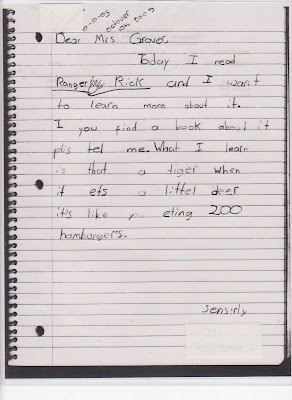 0-10-03
octover
10th 2003
Dear Mrs Grover,
Today I read
Ranger Rick and I want
to learn more about it.
I you find a book about it
pls tel me. What I learn
is that a tiger when
it ets a littel deer
it's like you eting 200
hamburgers.
Sensirly